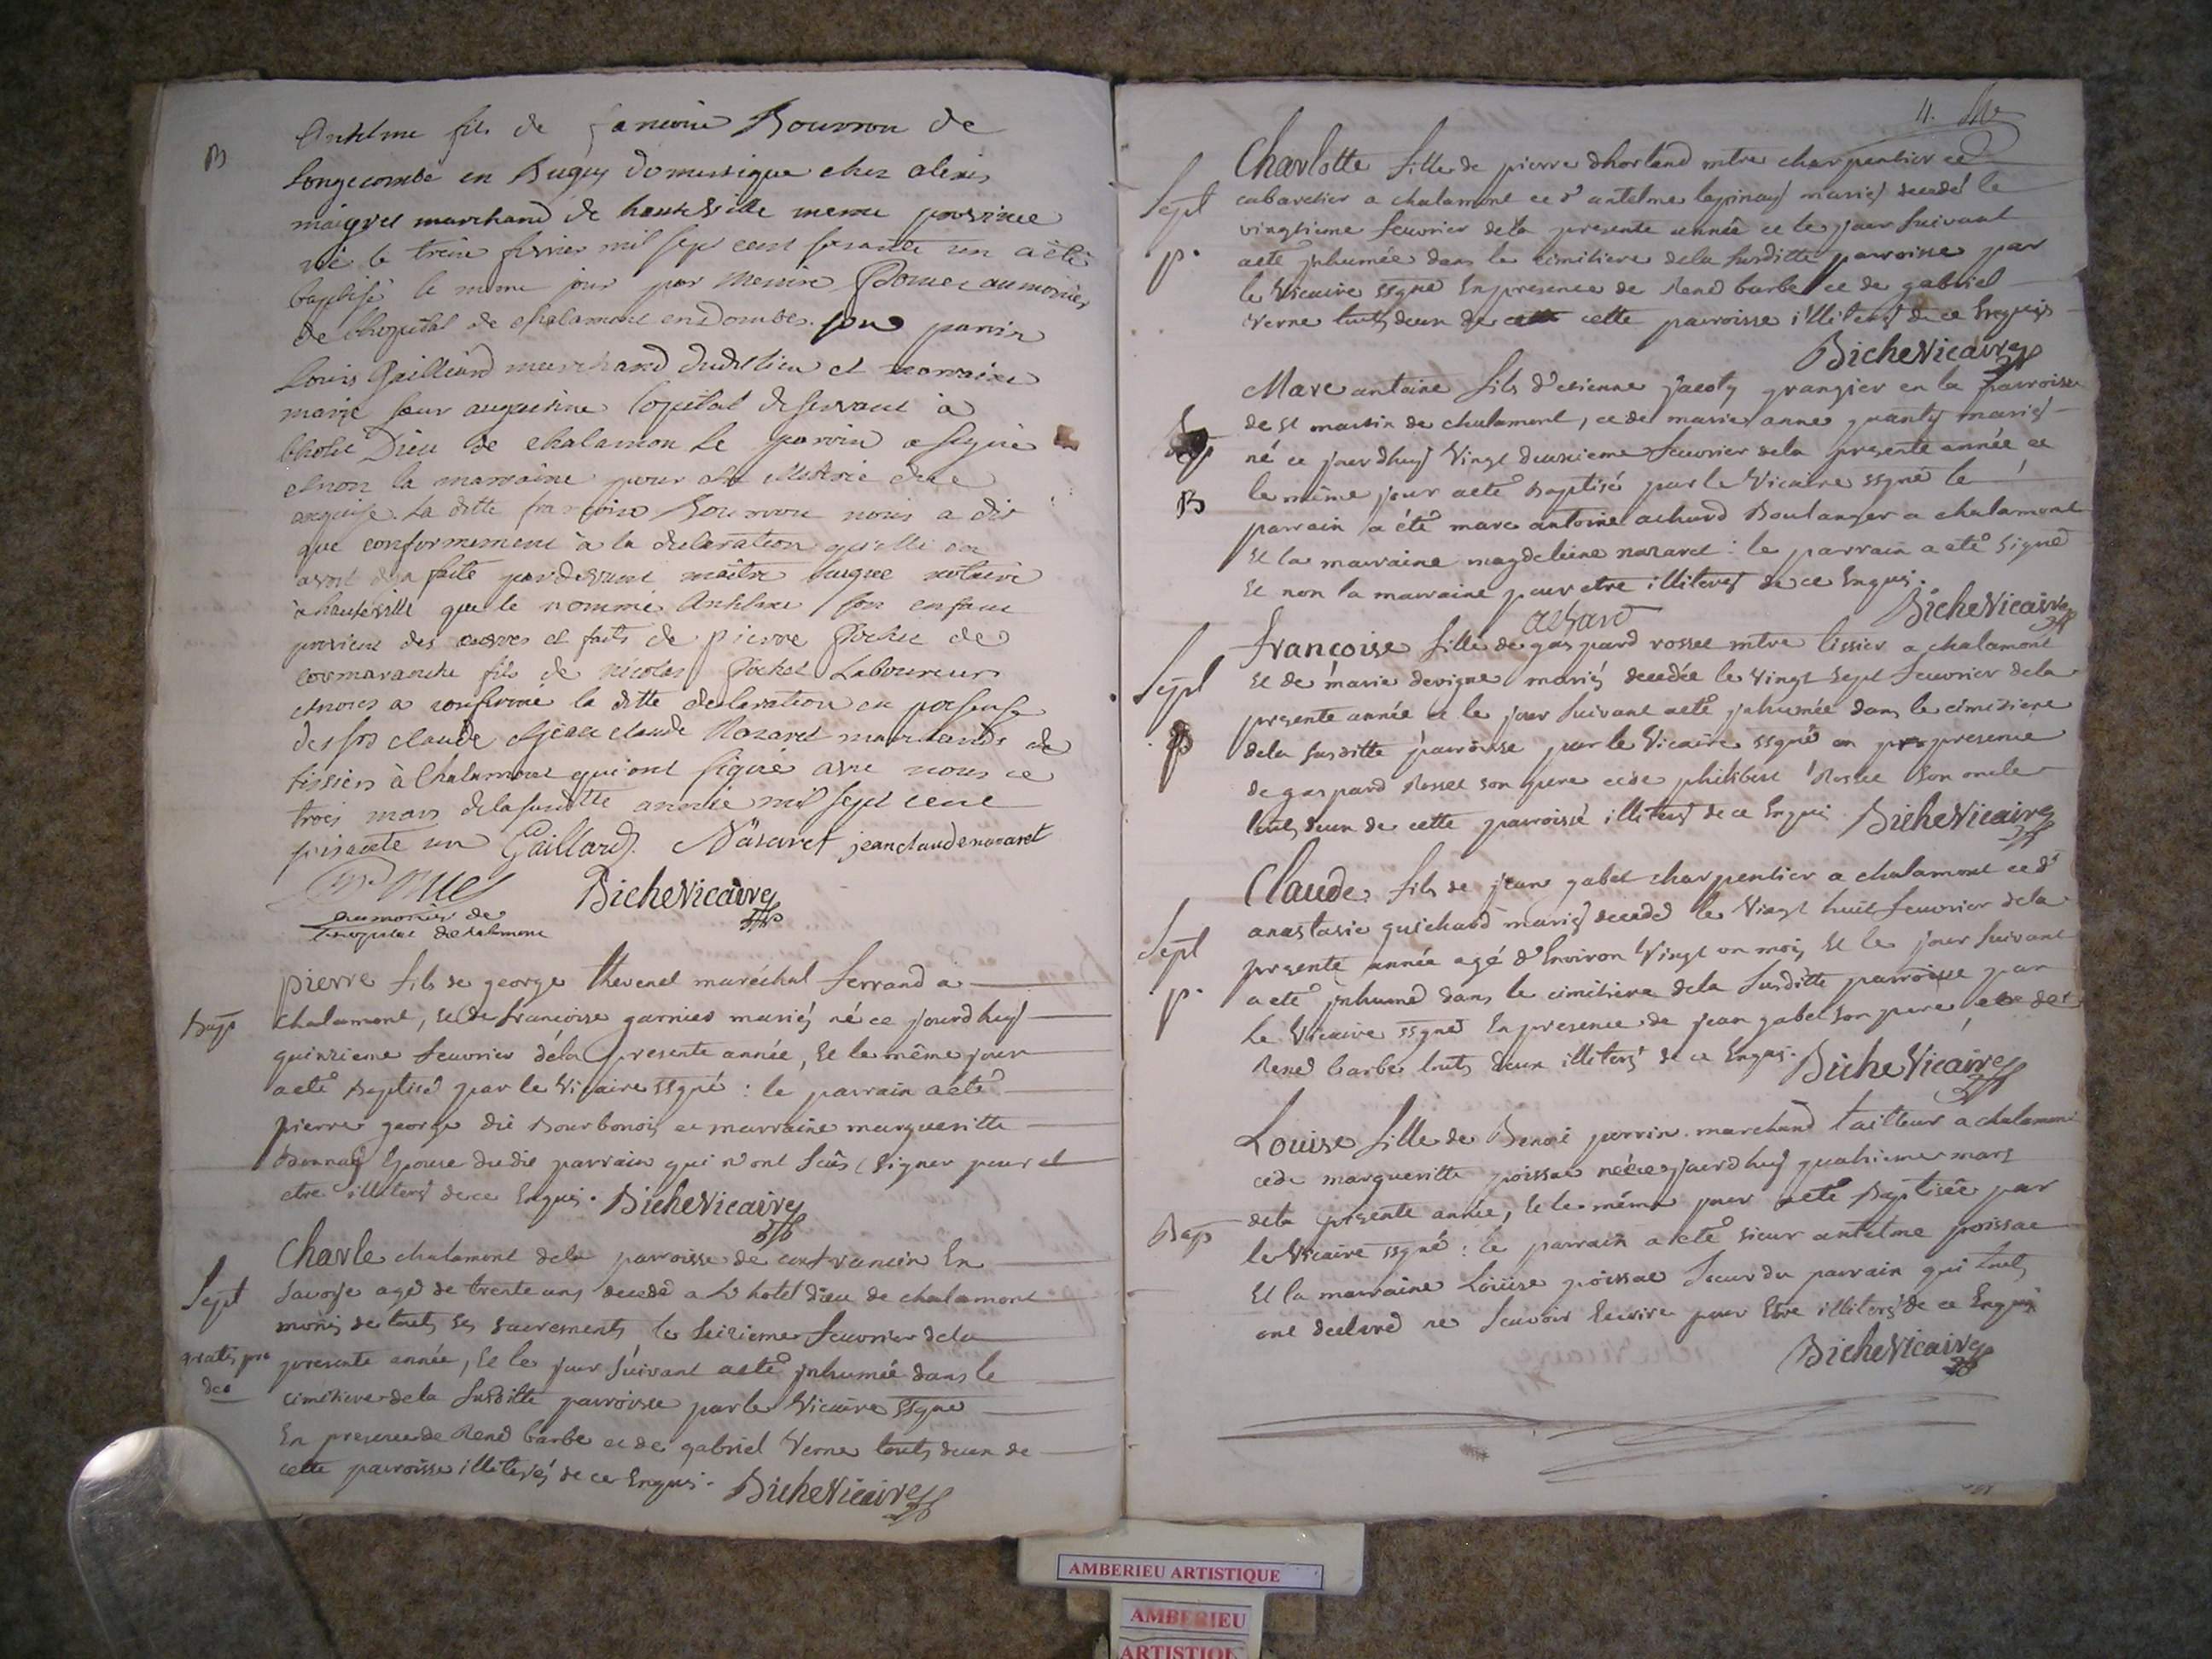 B
Anthelme fils de francoise Bouvron de
Longecombe en Bugey domestique chez alexis
maigret marchand de hauteville meme province
né le treize fevrier mil sept cent soixante un a été
baptisé le meme jour par Messire aumonier
de lhopital de chalamont en Dombes. son parrin
Louis Gailliard marchand dudit lieu et marraine
marie soeur augustine lopital desservant à
lhotel Dieu de chalamon Le parrin a signé
et non la marraine pour etre de ce
enquise. La ditte francoise Bouvron nous a dit
que conformement à la declaration qu'elle en
avoit deja faite pardevant maître notaire
à hauteville que le nommé Anthelme son enfant
provient des oeuvres et faits de pierre Jochet de
cormaranche fils de nicolas Jochet Laboureur
et nous a confirmé la ditte declaration en presence
des srs claude et jean claude Nazaret marchands
tissiers à Chalamont qui ont signé avec nous ce
trois mars de la susditte année mil sept cent
soixante un Gaillard. Nazaret jean claude nazaret
aumonier de
lhopital de chalamont
Biche Vicaire
Bap
pierre fils de george thevenet maréchal ferrand a
chalamont, et de francoise garnier mariés né ce jourdhuy
quinzieme feuvrier dela presente année, Et le même jour
aeté Baptisé par le Vicaire ssgné : le parrain aeté
pierre george dit Bourbonois et marraine margueritte
Epouse dudit parrain qui n'ont sçûs signer pour
etre illiterés de ce Enquis. Biche Vicaire
Sept
gratis pro
deo
Charle chalamont dela parroisse de en
Savoye agé de trente ans decedé a L'hotel dieu de chalamont
munis de touts ses sacrements le seizieme feuvrier dela
presente année, Et le jour suivant aeté jnhumé dans le
cimitiere dela susditte parroisse par le Vicaire ssgné
En presence de René barbe et de gabriel Verne touts deux de
cette parroisse illiterés de ce Enquis. Biche Vicaire
11.
Sept
p.
Charlotte fille de pierre dhorland mtre charpentier et
cabaretier a chalamont et d'antelme lapinay mariés decedé le
vingtieme feuvrier dela presente année et le jour suivant
aeté jnhumée dans le cimitiere dela susditte parroisse par
le Vicaire ssgné En presence de René barbe et de gabriel
Verne touts deux de cette parroisse illiterés de ce Enquis
Biche Vicaire
B
Marc antoine fils d'etienne jacoty grangier en la parroisse
de St martin de chalamont, et de marie anne mariés
né ce jourdhuy Vingt deuxieme feuvrier dela presente année et
le même jour aeté Baptisé par le Vicaire ssgné le
parrain a été marc antoine achard Boulanger a chalamont
Et la marraine magdeleine nazaret : le parrain a eté signé
Et non la marraine pour etre illiterés de ce Enquis.
achard Biche Vicaire
Sept
p
françoise fille de gaspard rosset mtre tissier a chalamont
Et de marie devigne mariés decedée le Vingt Sept feuvrier dela
presente année et le jour suivant aeté jnhumée dans le cimitiere
dela susditte parroisse par le Vicaire ssgné en presence
de gaspard Rosset son pere et de philibert Rosset son oncle
touts deux de cette parroisse illiterés de ce Enquis Biche Vicaire
Sept
p.
Claude fils de jean gabet charpentier a chalamont et d'
anastasie guichard mariés decedé le Vingt huit feuvrier dela
presente année agé d'Environ Vingt un mois Et le jour suivant
a eté jnhumé dans le cimitiere dela susditte parroisse par
Le Vicaire ssgné En presence de jean gabet son pere et de
René barbe touts deux illiterés de ce Enquis. Biche Vicaire
Bap
Louise fille de Benoit perrin marchand tailleur a chalamont
et de margueritte poissat née ce jourdhuy quatrieme mars
dela presente année, Et le même jour aeté Baptisée par
le Vicaire ssgné : le parrain a eté sieur antelme poissat
Et la marraine Loüise poissat soeur du parrain qui touts
ont declaré ne scavoir Ecrire pour Etre illiterés de ce Enquis
Biche Vicaire
AMBERIEU ARTISTIQUE
AMBERIEU
ARTISTIQU